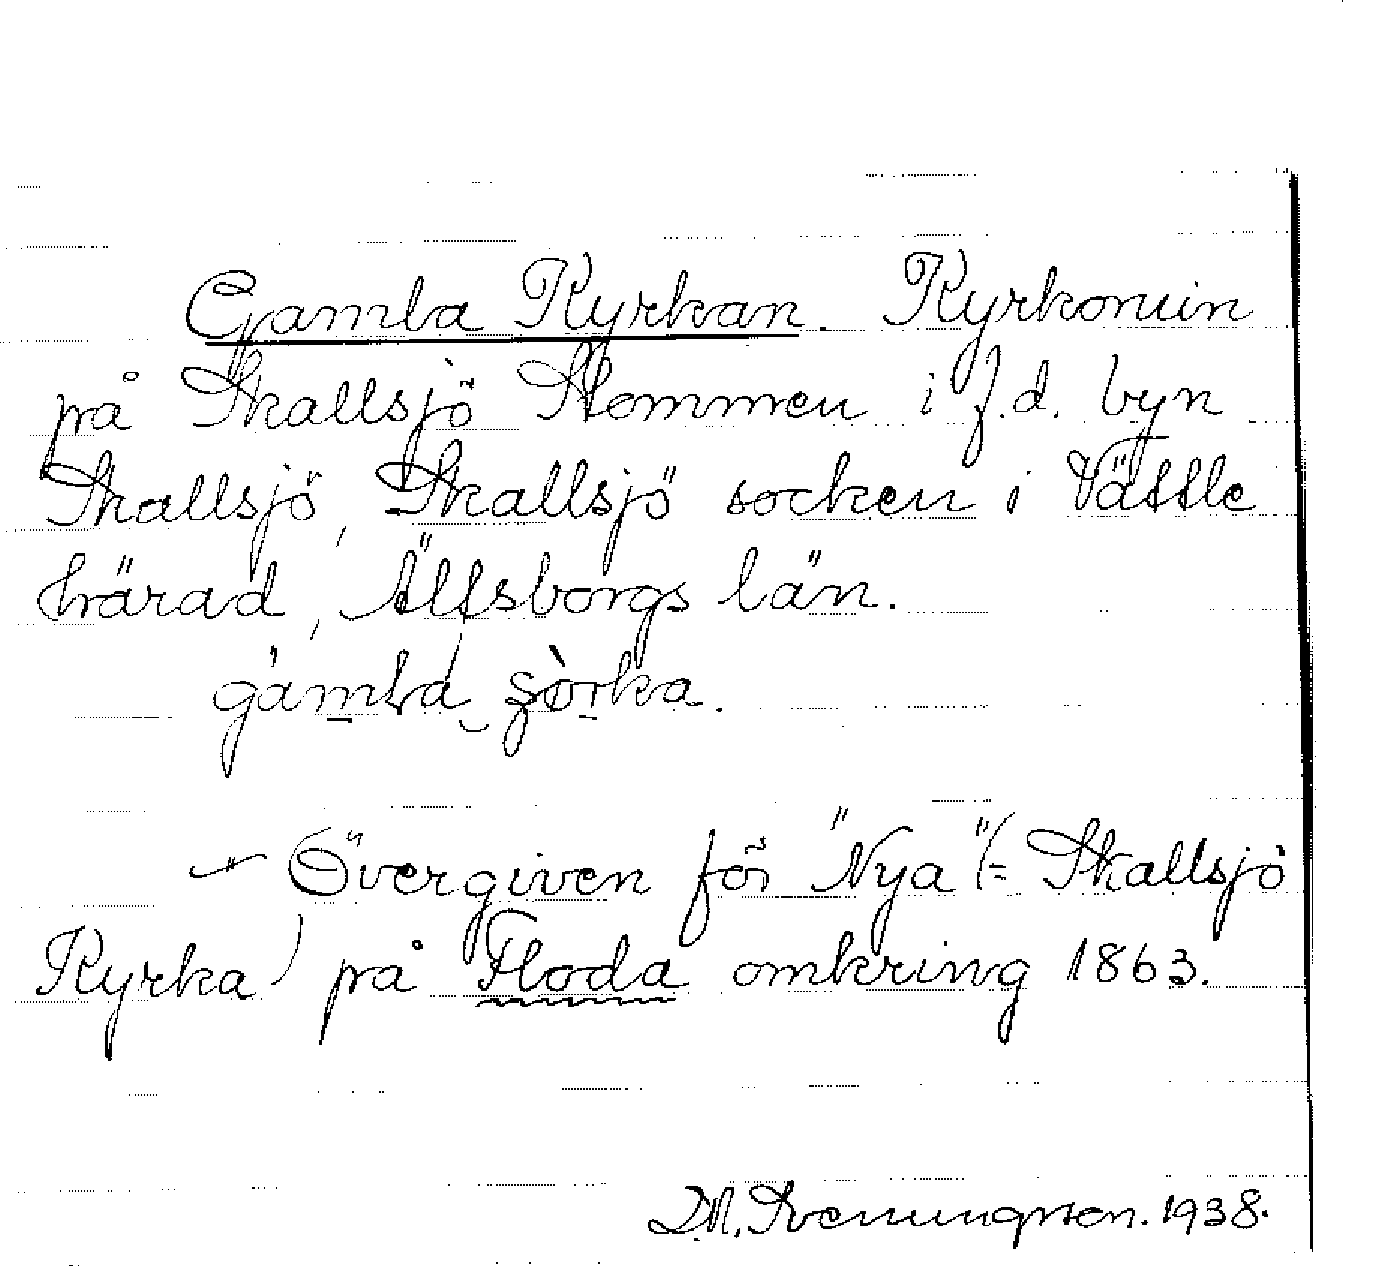 Gamla Kyrkan. Kyrkoruin
på Skallsjö Stommen i f.d. byn
Skallsjö, Skallsjö socken i Vättle
härad, Älfsborgs län.
gámla, ʂòrka.
Övergiven för "Nya" (= Skallsjö
Kyrka) på Floda omkring 1863.
D.N. Svenungsson. 1938.